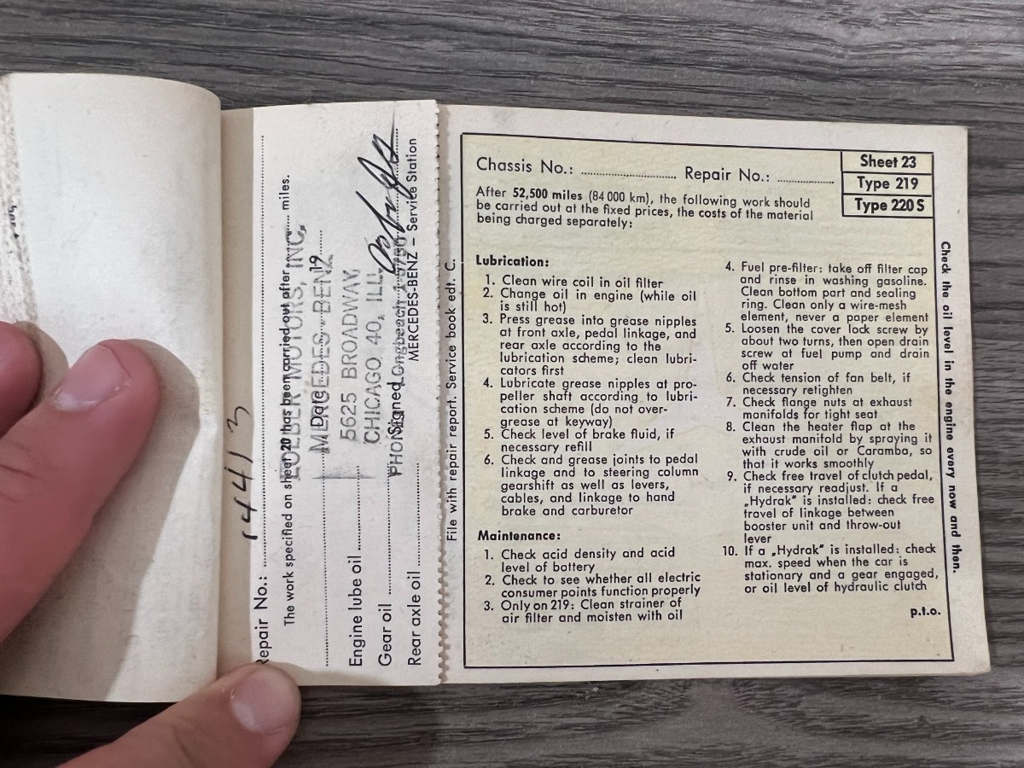 Repair No.: 1441 3
The work specified on sheet 20 has been carried out after miles.
MOTORS, INC.
Date 19
MERCEDES-BENZ
5625 BROADWAY
Engine lube oil
CHICAGO 40, ILL.
Gear oil
Signed
PHONE Longbeach 1-5700
MERCEDES-BENZ – Service Station
Rear axle oil
File with repair report. Service book edt. C.
Chassis No.: Repair No.:
Sheet 23
Type 219
Type 220 S
After 52,500 miles (84 000 km), the following work should
be carried out at the fixed prices, the costs of the material
being charged separately:
Lubrication:
1. Clean wire coil in oil filter
2. Change oil in engine (while oil
is still hot)
3. Press grease into grease nipples
at front axle, pedal linkage, and
rear axle according to the
lubrication scheme; clean lubri-
cators first
4. Lubricate grease nipples at pro-
peller shaft according to lubri-
cation scheme (do not over-
grease at keyway)
5. Check level of brake fluid, if
necessary refill
6. Check and grease joints to pedal
linkage and to steering column
gearshift as well as levers,
cables, and linkage to hand
brake and carburetor
Maintenance:
1. Check acid density and acid
level of battery
2. Check to see whether all electric
consumer points function properly
3. Only on 219: Clean strainer of
air filter and moisten with oil
4. Fuel pre-filter: take off filter cap
and rinse in washing gasoline.
Clean bottom part and sealing
ring. Clean only a wire-mesh
element, never a paper element
5. Loosen the cover lock screw by
about two turns, then open drain
screw at fuel pump and drain
off water
6. Check tension of fan belt, if
necessary retighten
7. Check flange nuts at exhaust
manifolds for tight seat
8. Clean the heater flap at the
exhaust manifold by spraying it
with crude oil or Caramba, so
that it works smoothly
9. Check free travel of clutch pedal,
if necessary readjust. If a
„Hydrak" is installed: check free
travel of linkage between
booster unit and throw-out
lever
10. If a „Hydrak" is installed: check
max. speed when the car is
stationary and a gear engaged,
or oil level of hydraulic clutch
p.t.o.
Check the oil level in the engine every now and then.